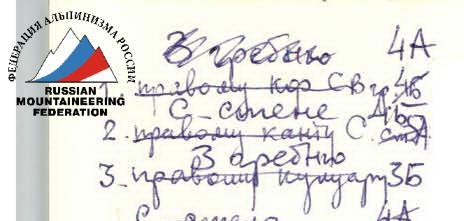 ФЕДЕРАЦИЯ АЛЬПИНИЗМА РОССИИ
RUSSIAN
MOUNTAINEERING
FEDERATION
З гребню 4А
1. правому кор СВ гр. 4Б
С-стене
2. правому канту С. ст.
З гребню
3. правому кулуару 3Б
4А